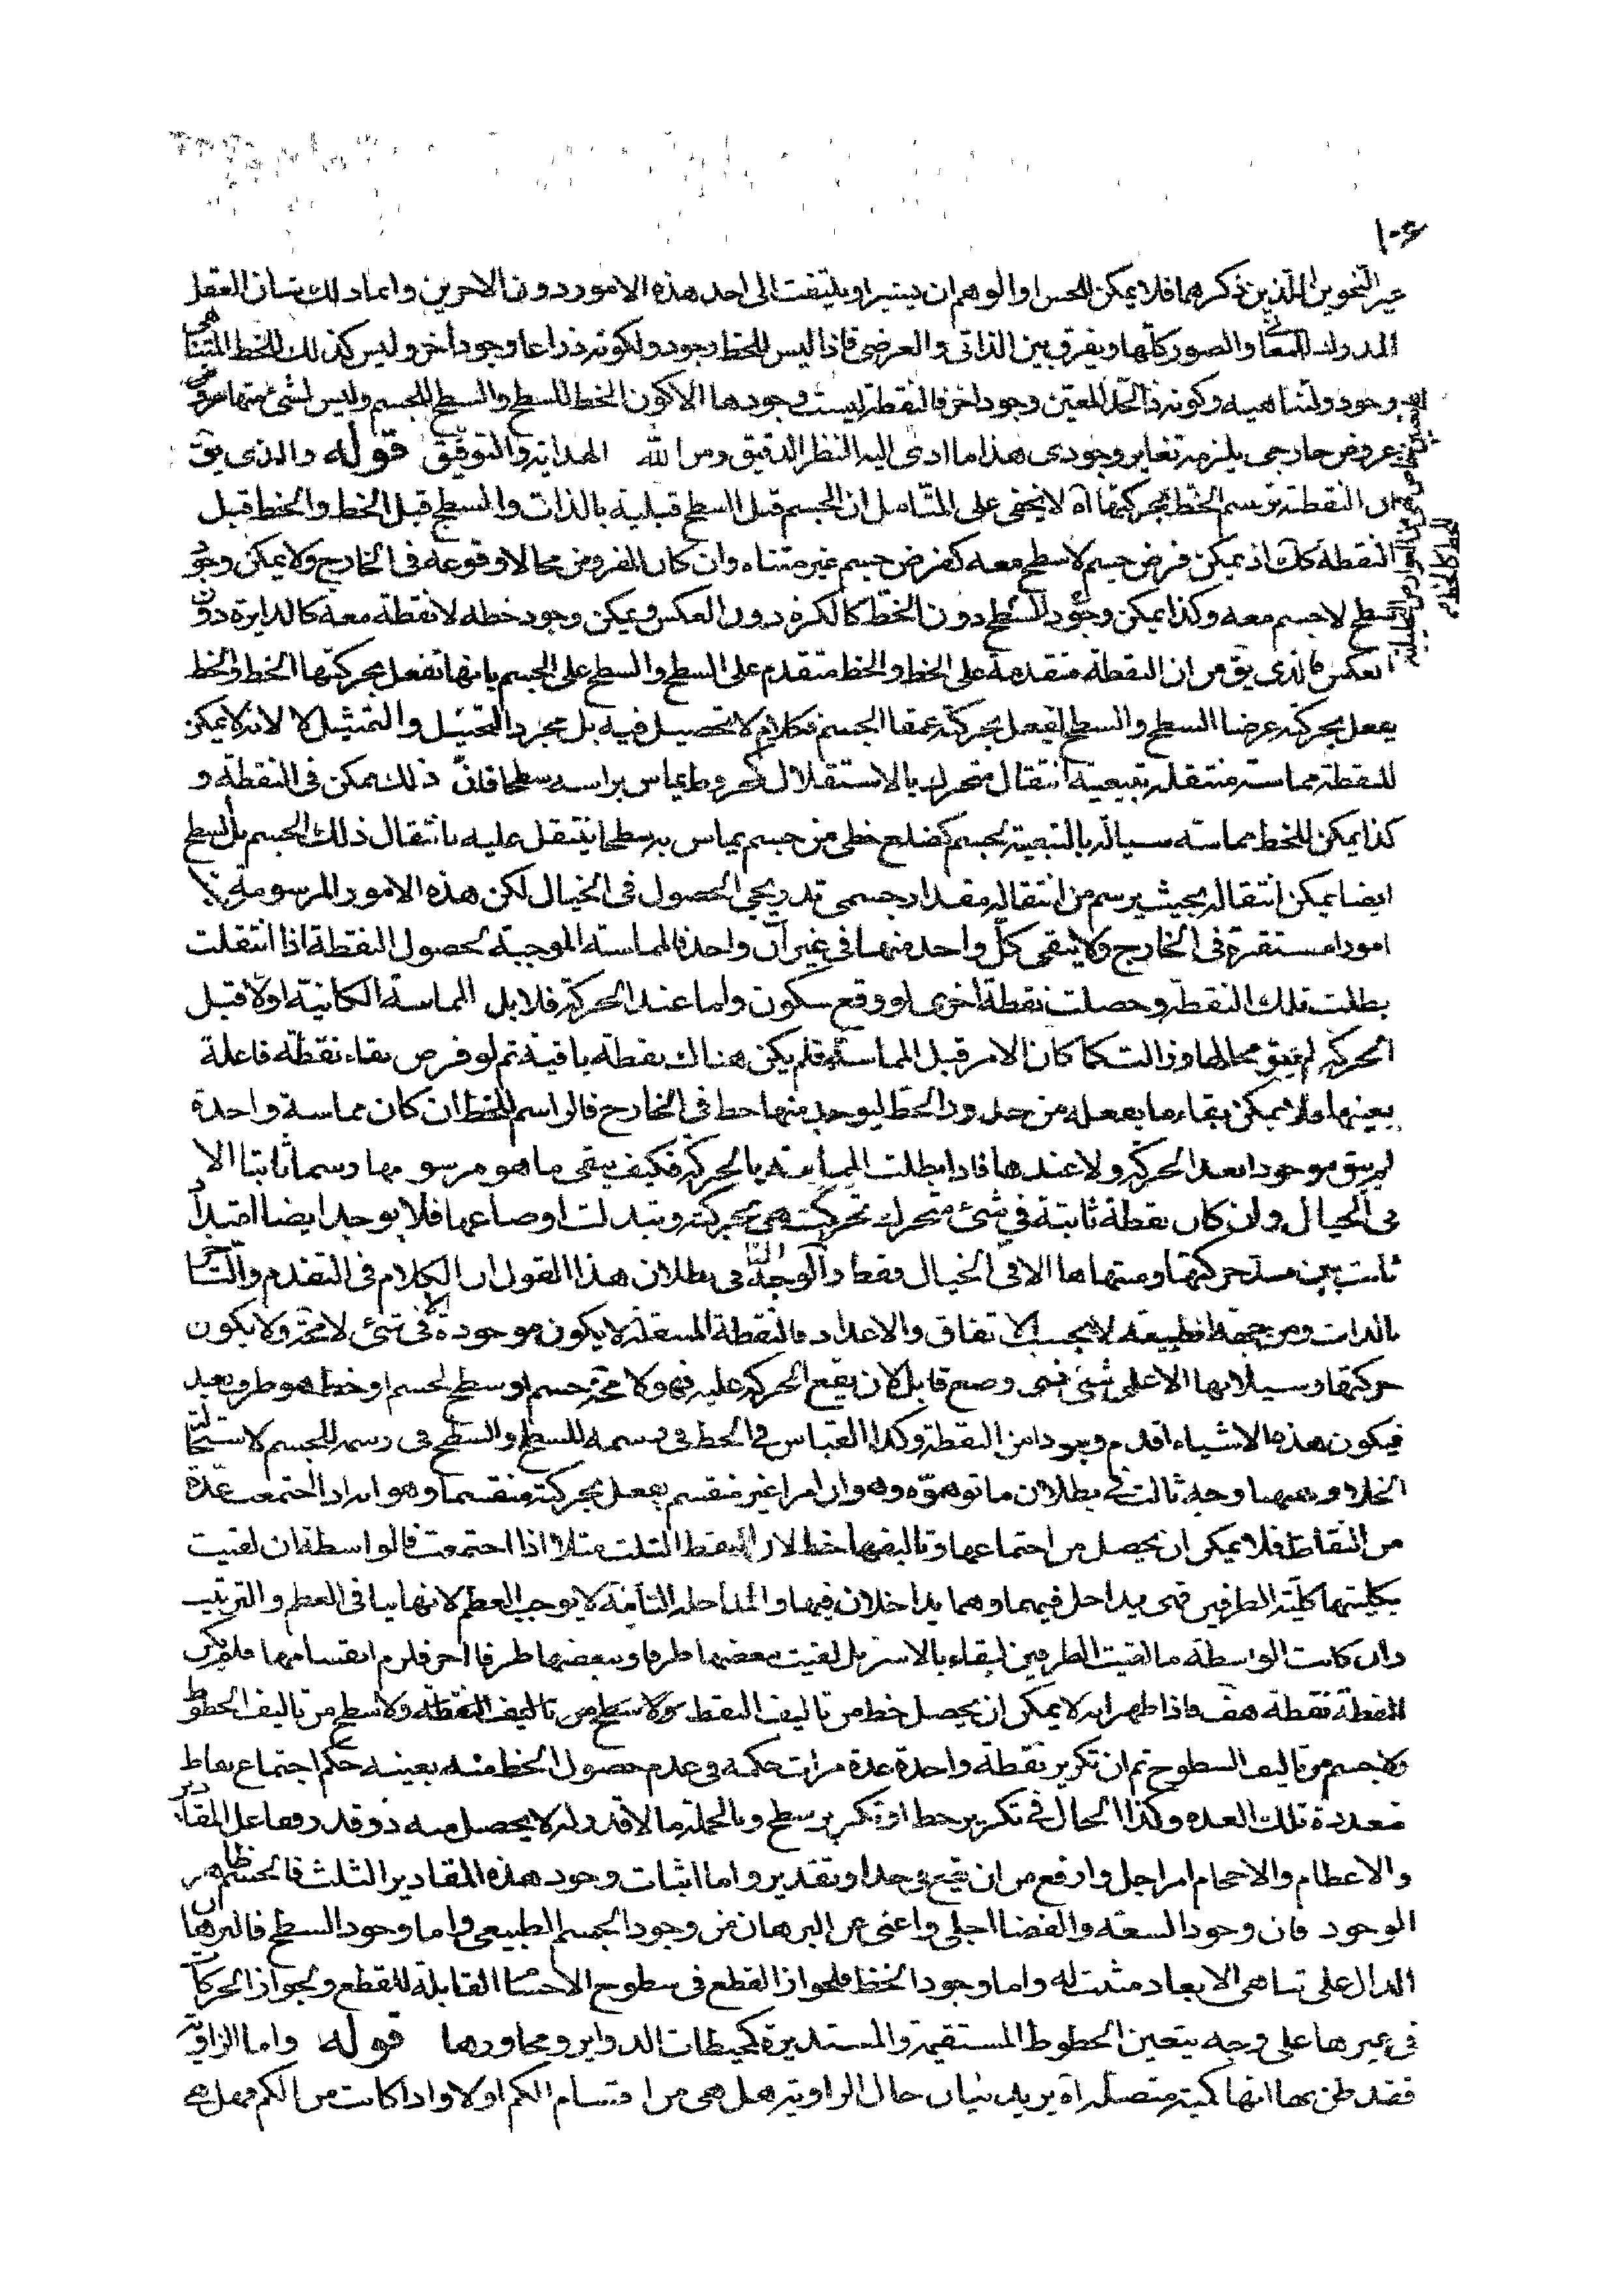 ١٠۶
غير النحوين الذين ذكرهما فلا يمكن للحس او الوهم ان يشير او يلتفت الى احد هذه الامور دون الاخرين وانما ذلك شان العقل
المدرك للمعانى والصور كلها ويفرق بين الذاتى والعرضى فاذا ليس للخط وجود ولكونه ذراعا وجود اخر وليس كذلك للخط المتناهى
وجود ولتناهيه وكونه ذا الحد المعين وجود اخر فالنقطة ليست وجودها الا كون الخط للسطح والسطح للجسم وليس لشئ منها عروض
عروض خارجى يلزمه تغاير وجودى هذا ما ادى اليه النظر الدقيق ومن الله الهداية والتوفيق قوله والذى يق
من ان النقطة ترسم الخط بحركتها آه لا يخفى على المتامل ان الجسم قبل السطح قبلية بالذات والسطح قبل الخط والخط قبل
النقطة كك اذ يمكن فرض جسم لا سطح معه كفرض جسم غير متناه وان كان المفروض محالا وقوعه فى الخارج ولا يمكن وجود
سطح لا جسم معه وكذا يمكن وجود السطح دون الخط كالكرة دون العكس ويمكن وجود خط لا نقطة معه كالدايرة دون
العكس فالذى يق من ان النقطة متقدمة على الخط والخط متقدم على السطح والسطح على الجسم بانها تفعل بحركتها الخط والخط
يفعل بحركته عرضا السطح والسطح يفعل بحركته عمقا الجسم فكلام لا تحصيل فيه بل مجرد التخييل والتمثيل لا لانه لا يمكن
للنقطة مماسة منتقلة بتبعية انتقال متحرك بالاستقلال كمخروط يماس براسه سطحا فان ذلك يمكن فى النقطة و
كذا يمكن للخط مماسة سيالة بالتبعية لجسم كضلع خطى من جسم يماس به سطحا ينتقل عليه بانتقال ذلك الجسم بل السطح
ايضا يمكن انتقاله بحيث يرسم من انتقاله مقدار جسمى تدريجى الحصول فى الخيال لكن هذه الامور المرسومة
امورا مستقرة فى الخارج ولا يبقى كل واحد منها فى غير آن واحد فالمماسة الموجبة لحصول النقطة اذا انتقلت
بطلت تلك النقطة وحصلت نقطة اخرى لو وقع سكون واما عند الحركة فلا بل المماسة الكائنة اولا قبل
الحركة لم يبق محالها وزالت كما كان الامر قبل المماسة فلم يكن هناك نقطة باقية ثم لو فرض بقاء نقطة فاعلة
بعينها فلا يمكن بقاء ما يفعله من حدود الخط ليوجد منها خط فى الخارج فالراسم للخط ان كان مماسة واحدة
لم يبق موجودا بعد الحركة ولا عندها فاذا بطلت المماسة بالحركة فكيف يبقى ما هو مرسومها رسما ثابتا الا
فى الخيال وان كان نقطة ثابتة فى شئ متحرك تحركت هى بحركته وتبدلت اوضاعها فلا يوجد ايضا امتدادا
ثابت بين مبدء حركتها ومنتهاها الا فى الخيال فقط والوجه الثانى فى بطلان هذا القول ان الكلام فى التقدم والتاخر
بالذات ومن جهة الطبيعة لا بحسب الاتفاق والاعداد فالنقطة المنتقلة لا يكون موجودة الا فى شئ لا محة ولا يكون
حركتها وسيلانها الا على شئ ذى وضع قابل لان يقع الحركة عليه فهو لا محة جسم او سطح لجسم او خط هو طرف بعد
فيكون هذه الاشياء اقدم وجودا من النقطة وكذا القياس فى الخط فى رسمه للسطح والسطح فى رسمه للجسم لاستحالة
الخلاء وههنا وجه ثالث فى بطلان ما توهموه وهو ان امرا غير منقسم يفعل بحركته منقسما وهو انه اذا اجتمعت عدة
من النقاط فلا يمكن ان يحصل من اجتماعها وتاليفها خط لان النقط الثلث مثلا اذا اجتمعت فالواسطة ان لقيت
بكليتها كلية الطرفين فهى يداخل فيهما وهما يداخلان فيها والمداخلة التامة لا يوجب العظم لانها ينافى العظم والترتيب
وان كانت الواسطة ما لقيت الطرفين لقاء بالاسر بل لقيت بعضها طرفا وببعضها طرفا اخر فلزم انقسامها فلم يكن
النقطة نقطة هف فاذا ظهر انه لا يمكن ان يحصل خط من تاليف النقط ولا سطح من تاليف النقطة ولا سطح من تاليف الخطوط
ولا جسم من تاليف السطوح ثم ان تكرير نقطة واحدة عدة مرات حكمه فى عدم حصول الخط منه بعينه حكم اجتماع نقاط
متعددة تلك العدة وكذا الحال فى تكرير خط او تكرير سطح وبالجملة ما لا قدر له لا يحصل منه ذو قدر وفاعل المقادير
والاعظام والاحجام امر اجل وارفع من ان يقع فى حد او تقدير واما اثبات وجود هذه المقادير الثلث فالجسم ظاهر
الوجود فان وجود السعة والفضا اجلى واغنى عن البرهان من وجود الجسم الطبيعى واما وجود السطح فالبرهان
الدال على تناهى الابعاد مثبت له واما وجود الخط فلجواز القطع فى سطوح الاجسام القابلة للقطع ولجواز الحركات
فى غيرها على وجه يتعين الخطوط المستقيمة والمستديرة كمحيطات الدواير ومحاورها قوله واما الزاوية
فقد ظن بها انها كمية متصلة آه يريد بيان حال الزاوية هل هى من اقسام الكم او لا واذا كانت من الكم فهل هى